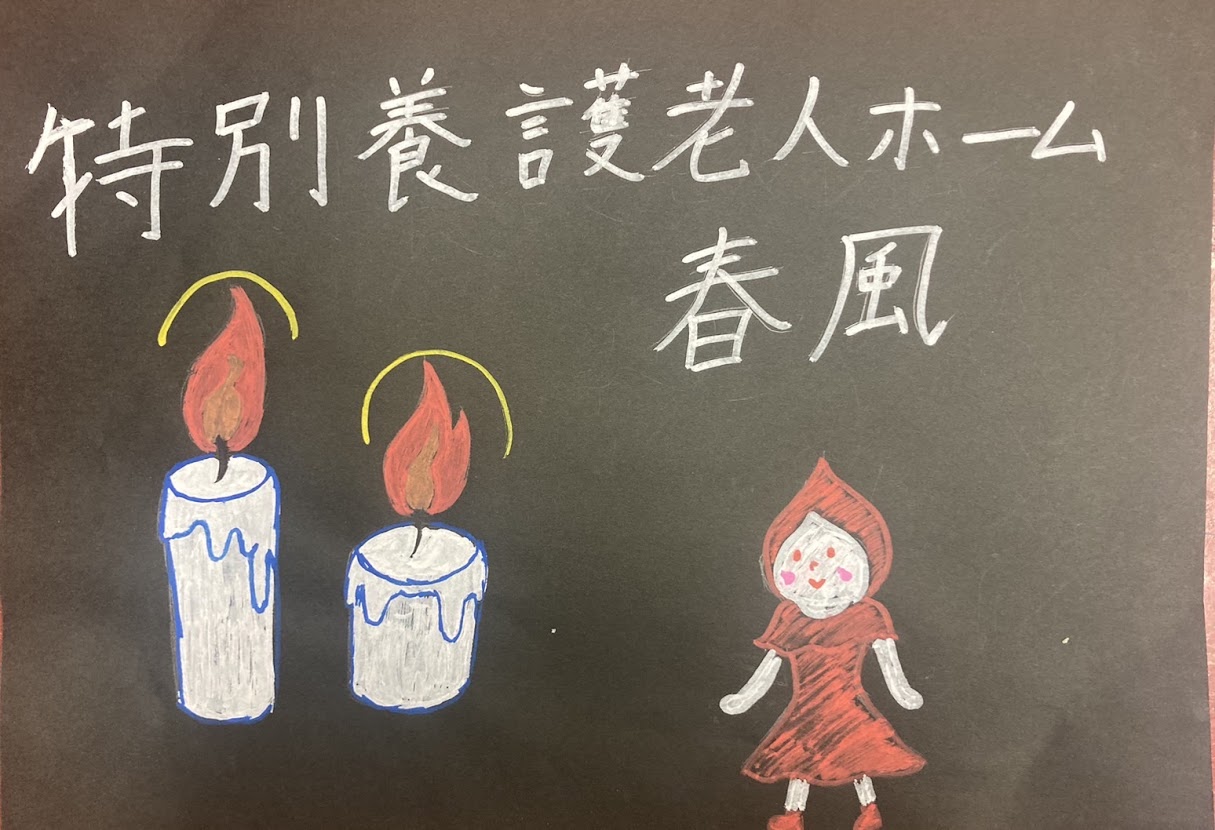 特別養護老人ホーム
春風